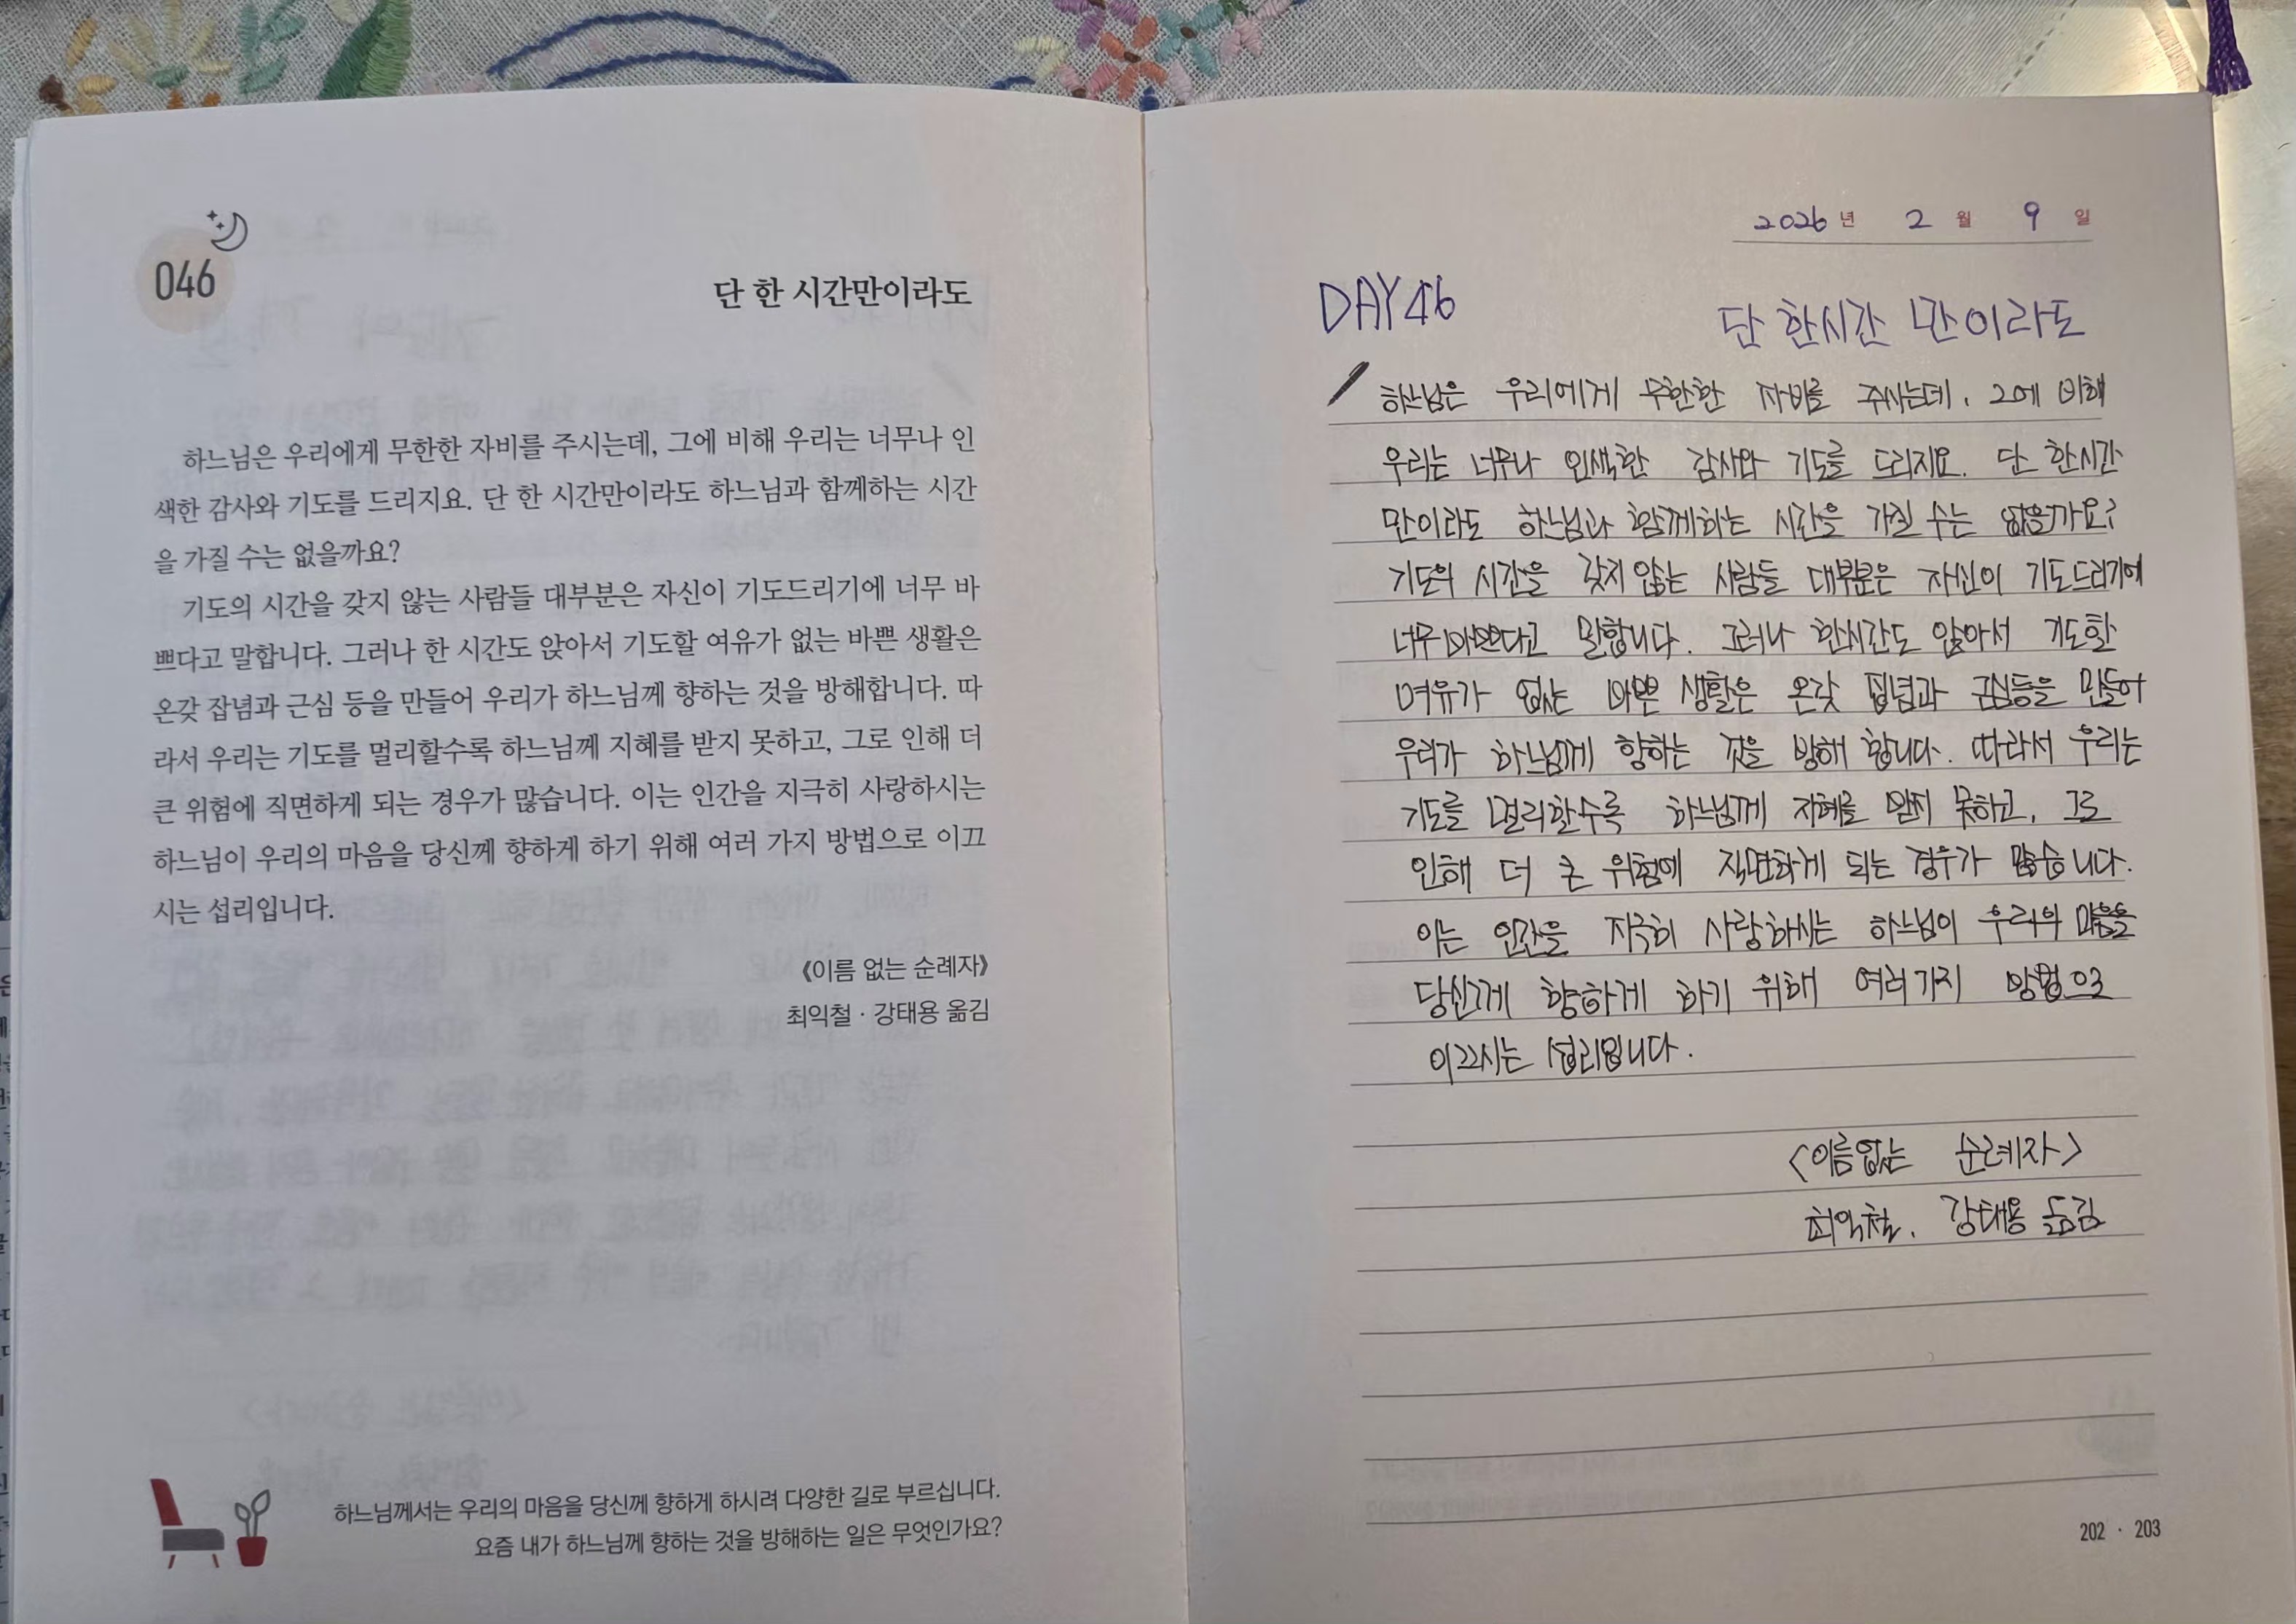 046
단 한 시간만이라도
하느님은 우리에게 무한한 자비를 주시는데, 그에 비해 우리는 너무나 인
색한 감사와 기도를 드리지요. 단 한 시간만이라도 하느님과 함께하는 시간
을 가질 수는 없을까요?
기도의 시간을 갖지 않는 사람들 대부분은 자신이 기도드리기에 너무 바
쁘다고 말합니다. 그러나 한 시간도 앉아서 기도할 여유가 없는 바쁜 생활은
온갖 잡념과 근심 등을 만들어 우리가 하느님께 향하는 것을 방해합니다. 따
라서 우리는 기도를 멀리할수록 하느님께 지혜를 받지 못하고, 그로 인해 더
큰 위험에 직면하게 되는 경우가 많습니다. 이는 인간을 지극히 사랑하시는
하느님이 우리의 마음을 당신께 향하게 하기 위해 여러 가지 방법으로 이끄
시는 섭리입니다.
《이름 없는 순례자》
최익철 · 강태용 옮김
하느님께서는 우리의 마음을 당신께 향하게 하시려 다양한 길로 부르십니다.
요즘 내가 하느님께 향하는 것을 방해하는 일은 무엇인가요?
2026년 2월 9일
DAY 46
단 한시간 만이라도
하느님은 우리에게 무한한 자비를 주시는데, 그에 비해
우리는 너무나 인색한 감사와 기도를 드리지요. 단 한시간
만이라도 하느님과 함께하는 시간을 가질 수는 없을까요?
기도의 시간을 갖지 않는 사람들 대부분은 자신이 기도드리기에
너무 바쁘다고 말합니다. 그러나 한시간도 앉아서 기도할
여유가 없는 바쁜 생활은 온갖 잡념과 근심등을 만들어
우리가 하느님께 향하는 것을 방해 합니다. 따라서 우리는
기도를 멀리할수록 하느님께 지혜를 받지 못하고, 그로
인해 더 큰 위험에 직면하게 되는 경우가 많습니다.
이는 인간을 지극히 사랑하시는 하느님이 우리의 마음을
당신께 향하게 하기 위해 여러가지 방법으로
이끄시는 섭리입니다.
<이름없는 순례자>
최익철, 강태용 옮김
202 · 203